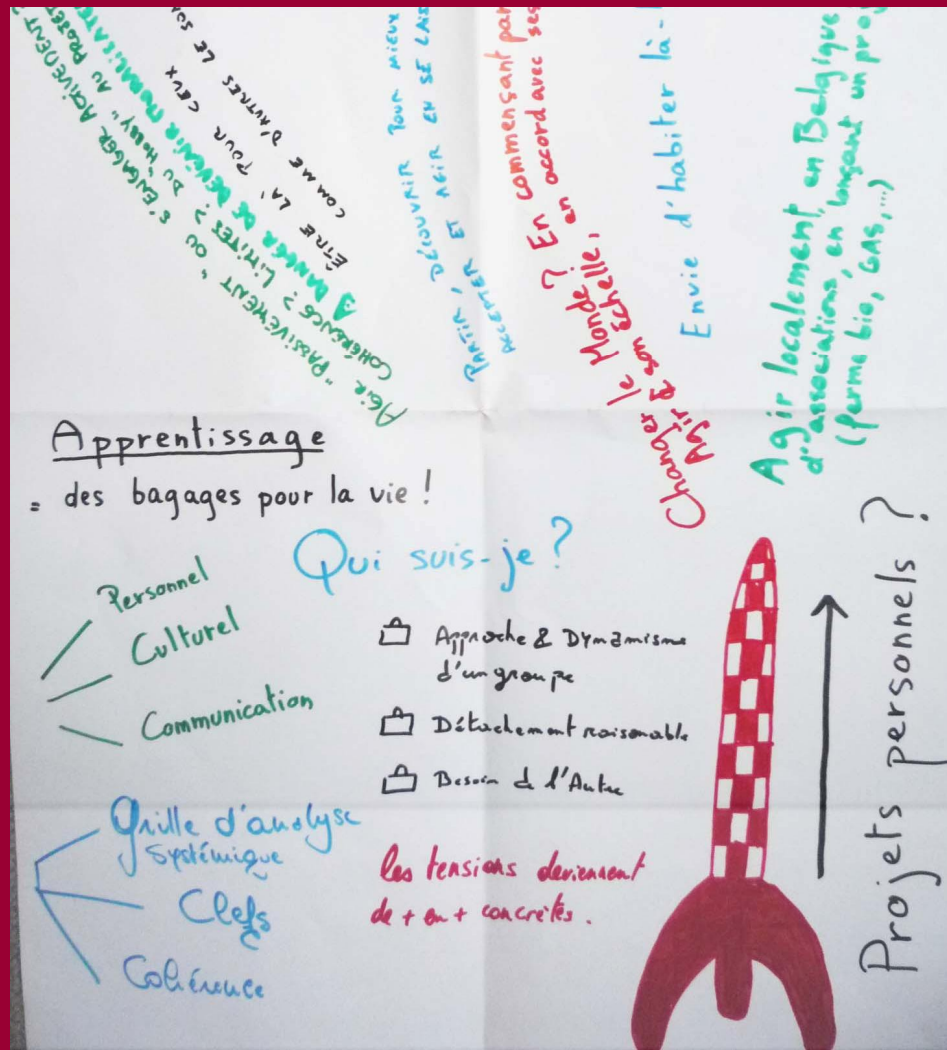 AGIR "PASSIVEMENT" OU S'ENGAGER ACTIVEMENT ?
COHÉRENCE ? LIMITES ? DU "HOBBY" AU PROJET
DANGER DE DEVENIR MORALISATE
ÊTRE LÀ POUR CEUX
COMME D'AUTRES LE SON
PARTIR, DÉCOUVRIR POUR MIEUX
ACCEPTER ET AGIR EN SE LAIS
Changer le Monde ? En commençant par
Agir à son échelle, en accord avec ses
Envie d'habiter là-
Agir localement, en Belgique
d'associations, en lançant un pro
(ferme bio, GAS, ...)
Apprentissage
= des bagages pour la vie !
Qui suis-je ?
Personnel
Culturel
Communication
Approche & Dynamisme
d'un groupe
Détachement raisonable
Besoin de l'Autre
Grille d'analyse
Systémique
Clefs
Cohérence
les tensions deviennent
de + en + concrètes.
Projets personnels ?